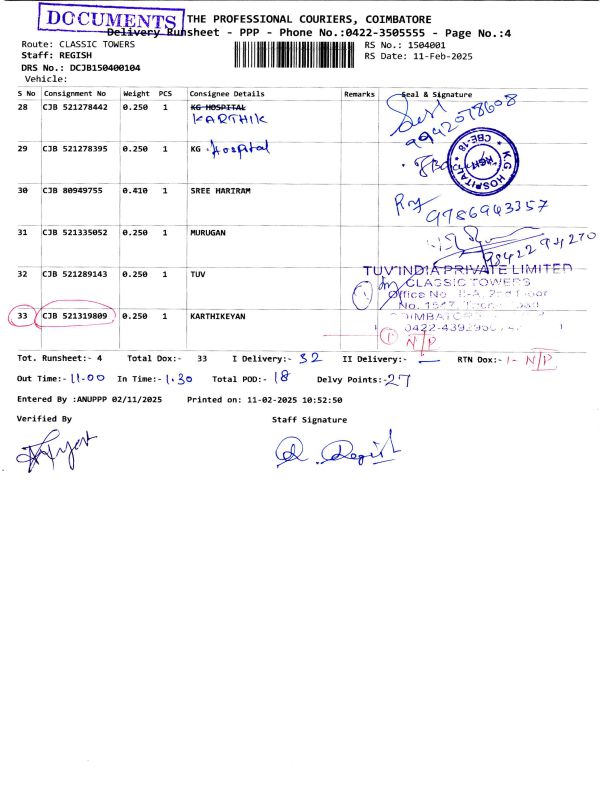 DOCUMENTS THE PROFESSIONAL COURIERS, COIMBATORE
Delivery Runsheet - PPP - Phone No.:0422-3505555 - Page No.:4
Route: CLASSIC TOWERS RS No.: 1504001
Staff: REGISH RS Date: 11-Feb-2025
DRS No.: DCJB150400104
Vehicle:
S No Consignment No Weight PCS Consignee Details Remarks Seal & Signature
28 CJB 521278442 0.250 1 KG HOSPITAL
KARTHIK 9942078608
29 CJB 521278395 0.250 1 KG. Hospital K.G. HOSPITAL CBE-18
30 CJB 80949755 0.410 1 SREE HARIRAM
9786943357
31 CJB 521335052 0.250 1 MURUGAN
32 CJB 521289143 0.250 1 TUV TUV INDIA PRIVATE LIMITED
CLASSIC TOWERS
Office No. 2nd Floor
33 CJB 521319809 0.250 1 KARTHIKEYAN
1 N/P
Tot. Runsheet:- 4 Total Dox:- 33 I Delivery:- 32 II Delivery:- — RTN Dox:- 1- N/P
Out Time:- 11.00 In Time:- 1.30 Total POD:- 18 Delvy Points:- 27
Entered By :ANUPPP 02/11/2025 Printed on: 11-02-2025 10:52:50
Verified By Staff Signature
R. Regish